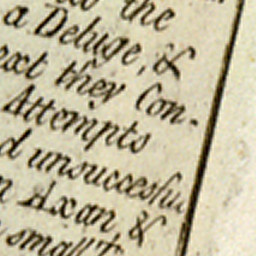 the
a Deluge, &
ext they Con-
Attempts
d unsuccesfu
n Axan, &
small